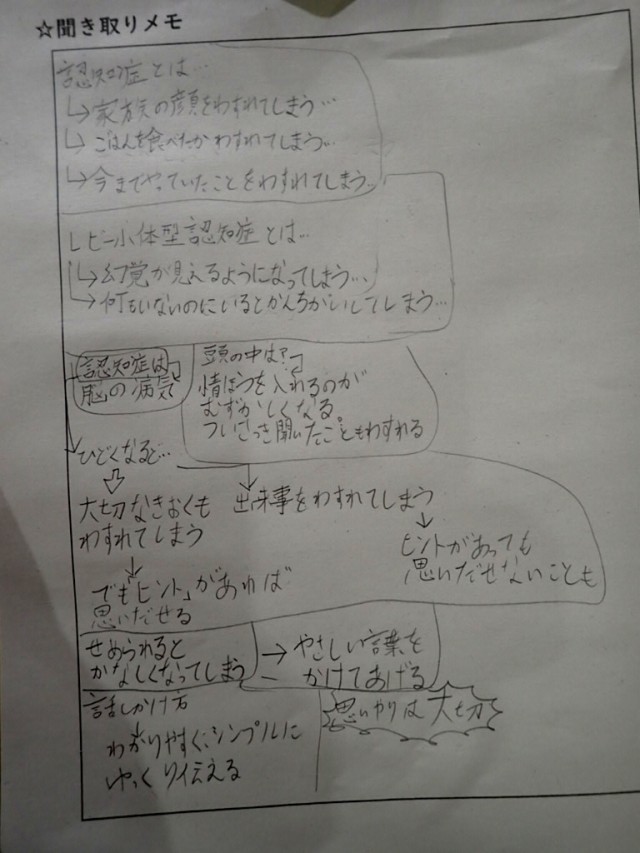 ☆聞き取りメモ
認知症とは…
↳家族の顔をわすれてしまう…
↳ごはんを食べたかわすれてしまう…
↳今までやっていたことをわすれてしまう…
レビー小体型認知症とは…
↳幻覚が見えるようになってしまう…
↳何もいないのにいるとかんちがいしてしまう…
認知症は
脳の病気
頭の中は?
情ほうを入れるのが
むずかしくなる。
ついさっき聞いたこともわすれる
ひどくなると…
大切なきおくも
わすれてしまう
↓
でも「ヒント」があれば
思いだせる
出来事をわすれてしまう
↓
ヒントがあっても
思いだせないことも
せめられると
かなしくなってしまう
→やさしい言葉を
かけてあげる
話しかけ方
わかりやすく、シンプルに
ゆっくり伝える
思いやりは大切